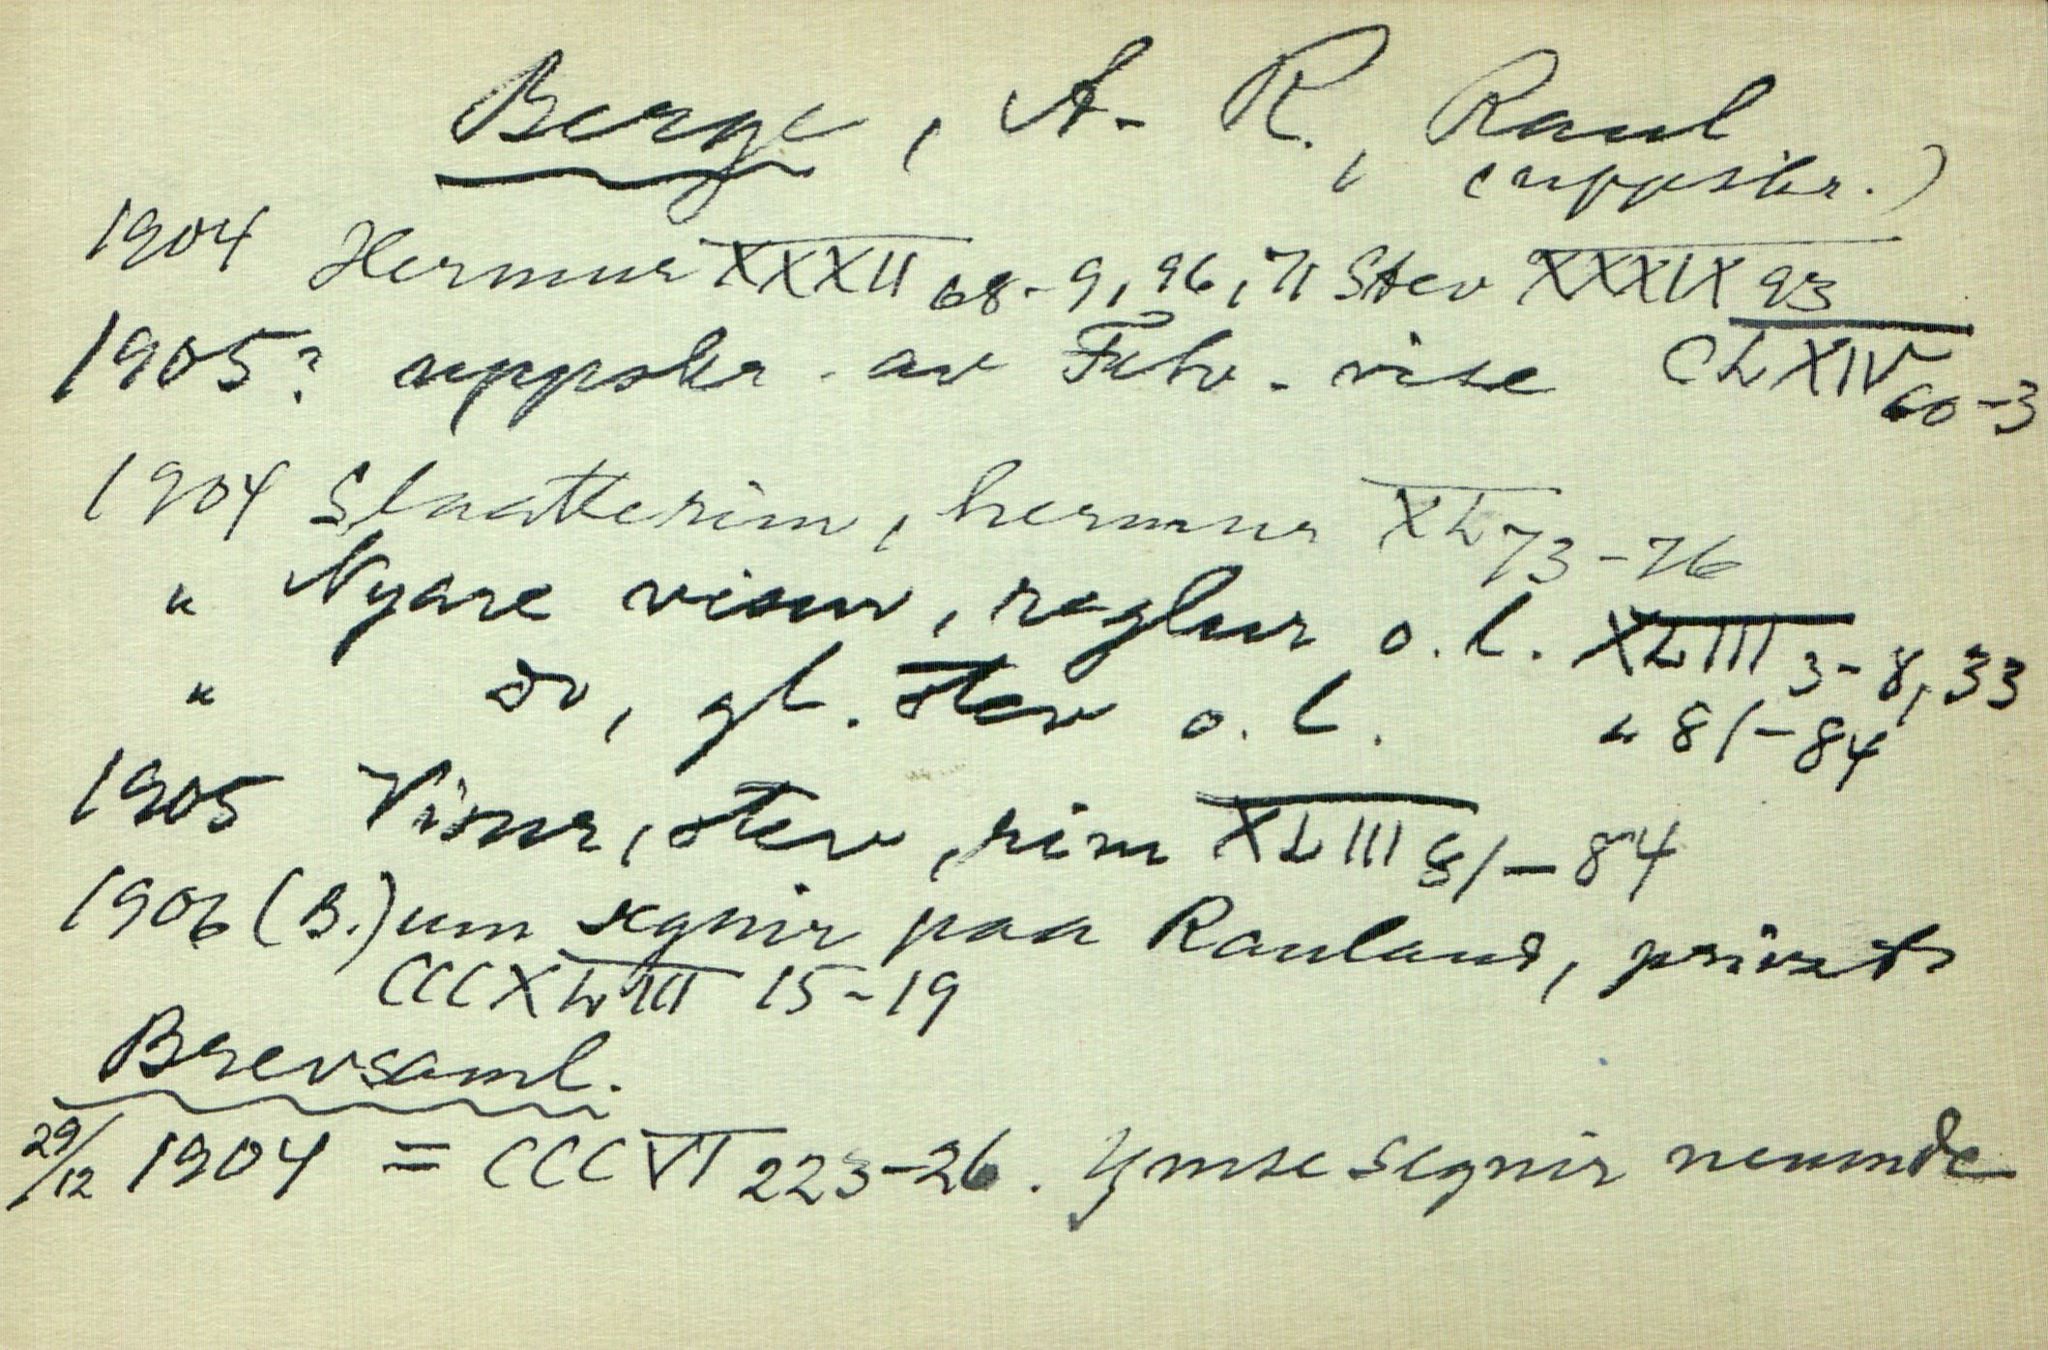 Berge, A. R., Raul
(uppskr.)
1904 Hermur XXXII 68-9, 96, 71 Stev XXXIX 93
1905? uppskr. av Felv. vise CLXIV 60-3
1904 Slaatterim, hermur XL 73-76
" Nyare visur, reglur o.l. XLIII 3-8, 33
" do, gl. stev o.l. " 81-84
1905 Visur, stev, rim XLIII 81-84
1906 (B.) um segnir paa Rauland, privat
CCCXLVIII 15-19
Brevsaml.
29/12 1904 = CCCVI 223-26. Ymse segnir nemnde